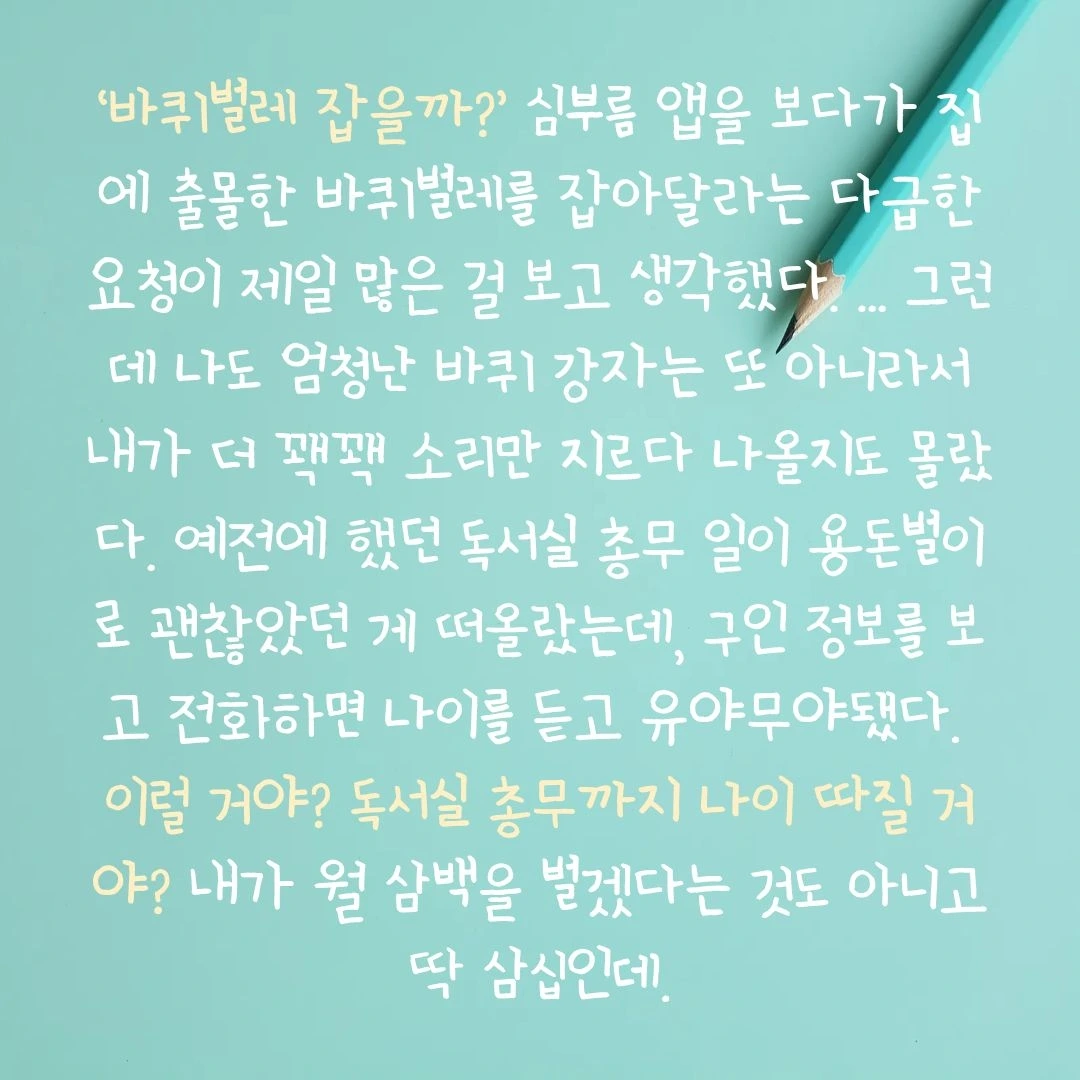 ‘바퀴벌레 잡을까?’ 심부름 앱을 보다가 집
에 출몰한 바퀴벌레를 잡아달라는 다급한
요청이 제일 많은 걸 보고 생각했다. ... 그런
데 나도 엄청난 바퀴 강자는 또 아니라서
내가 더 꽥꽥 소리만 지르다 나올지도 몰랐
다. 예전에 했던 독서실 총무 일이 용돈벌이
로 괜찮았던 게 떠올랐는데, 구인 정보를 보
고 전화하면 나이를 듣고 유야무야됐다.
이럴 거야? 독서실 총무까지 나이 따질 거
야? 내가 월 삼백을 벌겠다는 것도 아니고
딱 삼십인데.